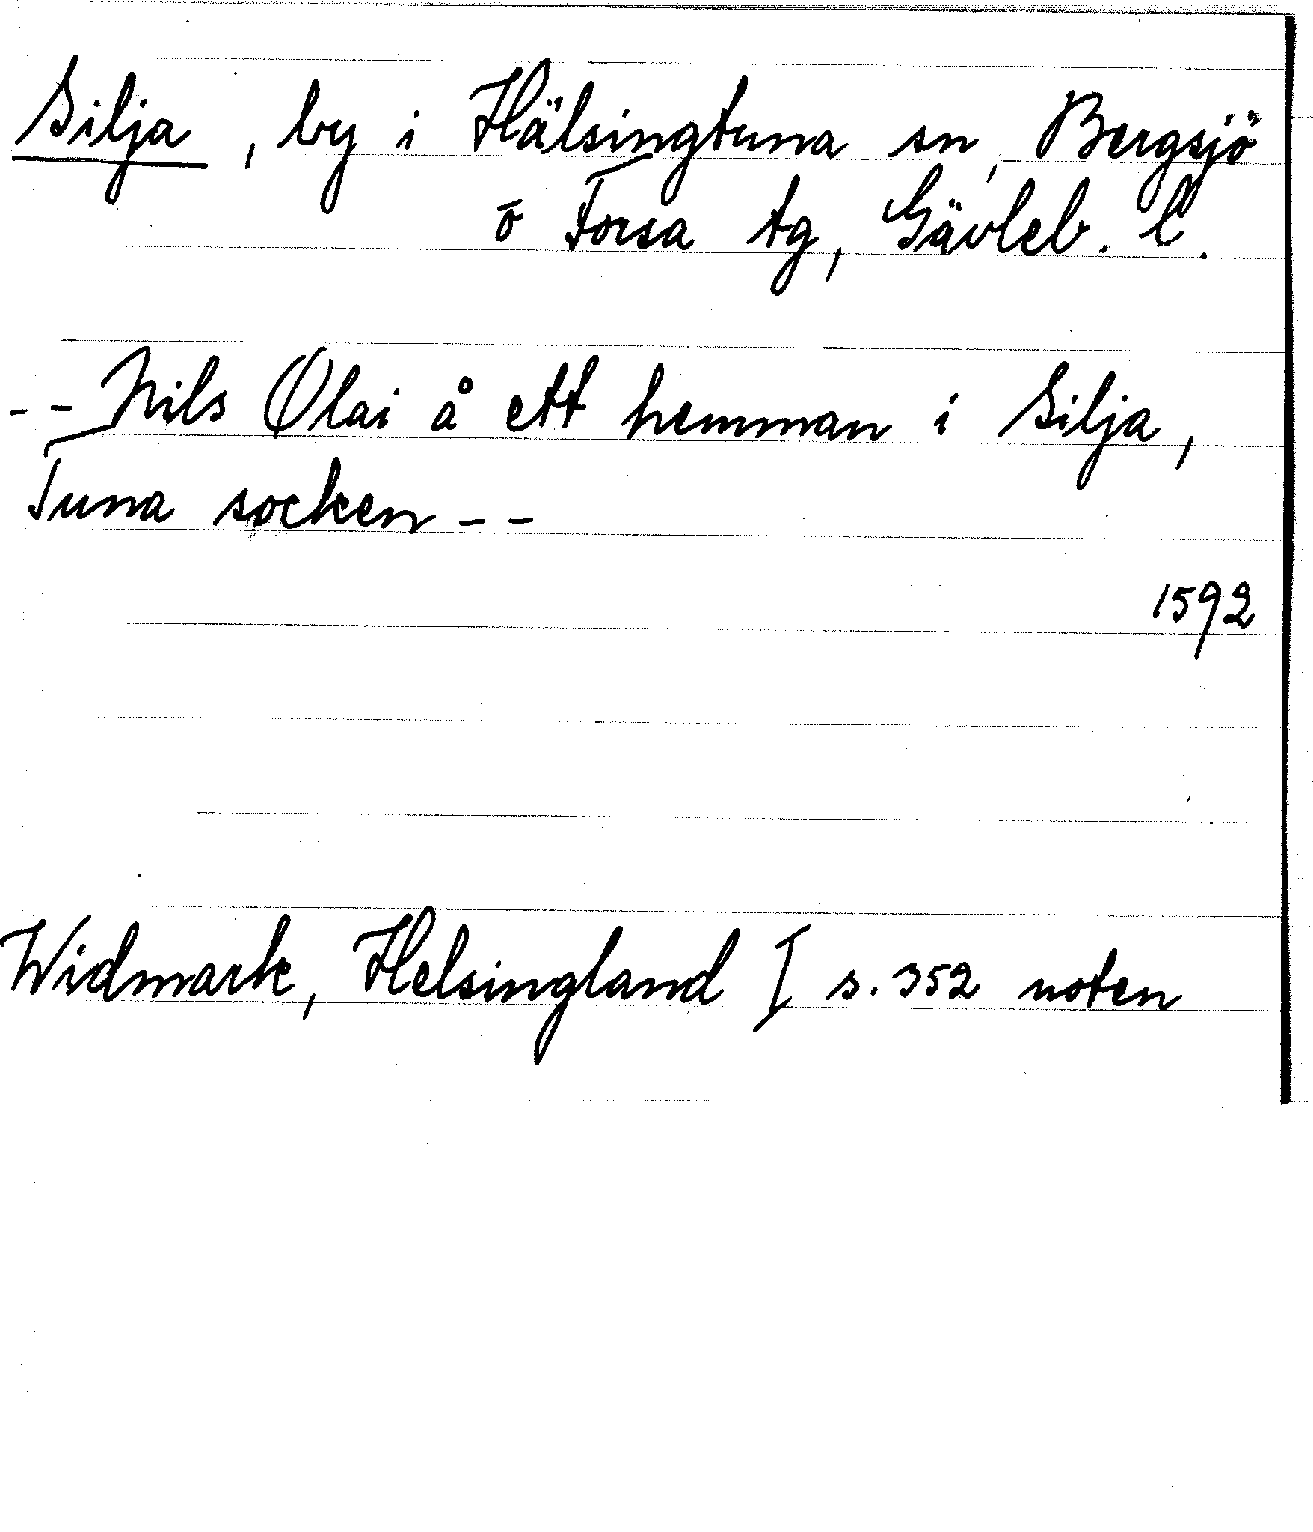 Silja, by i Hälsingtuna sn, Bergsjö
o Forsa tg, Gävleb. l.
-- Nils Olai å ett hemman i Silja,
Tuna socken --
1592
Widmark, Helsingland I s. 352 noten